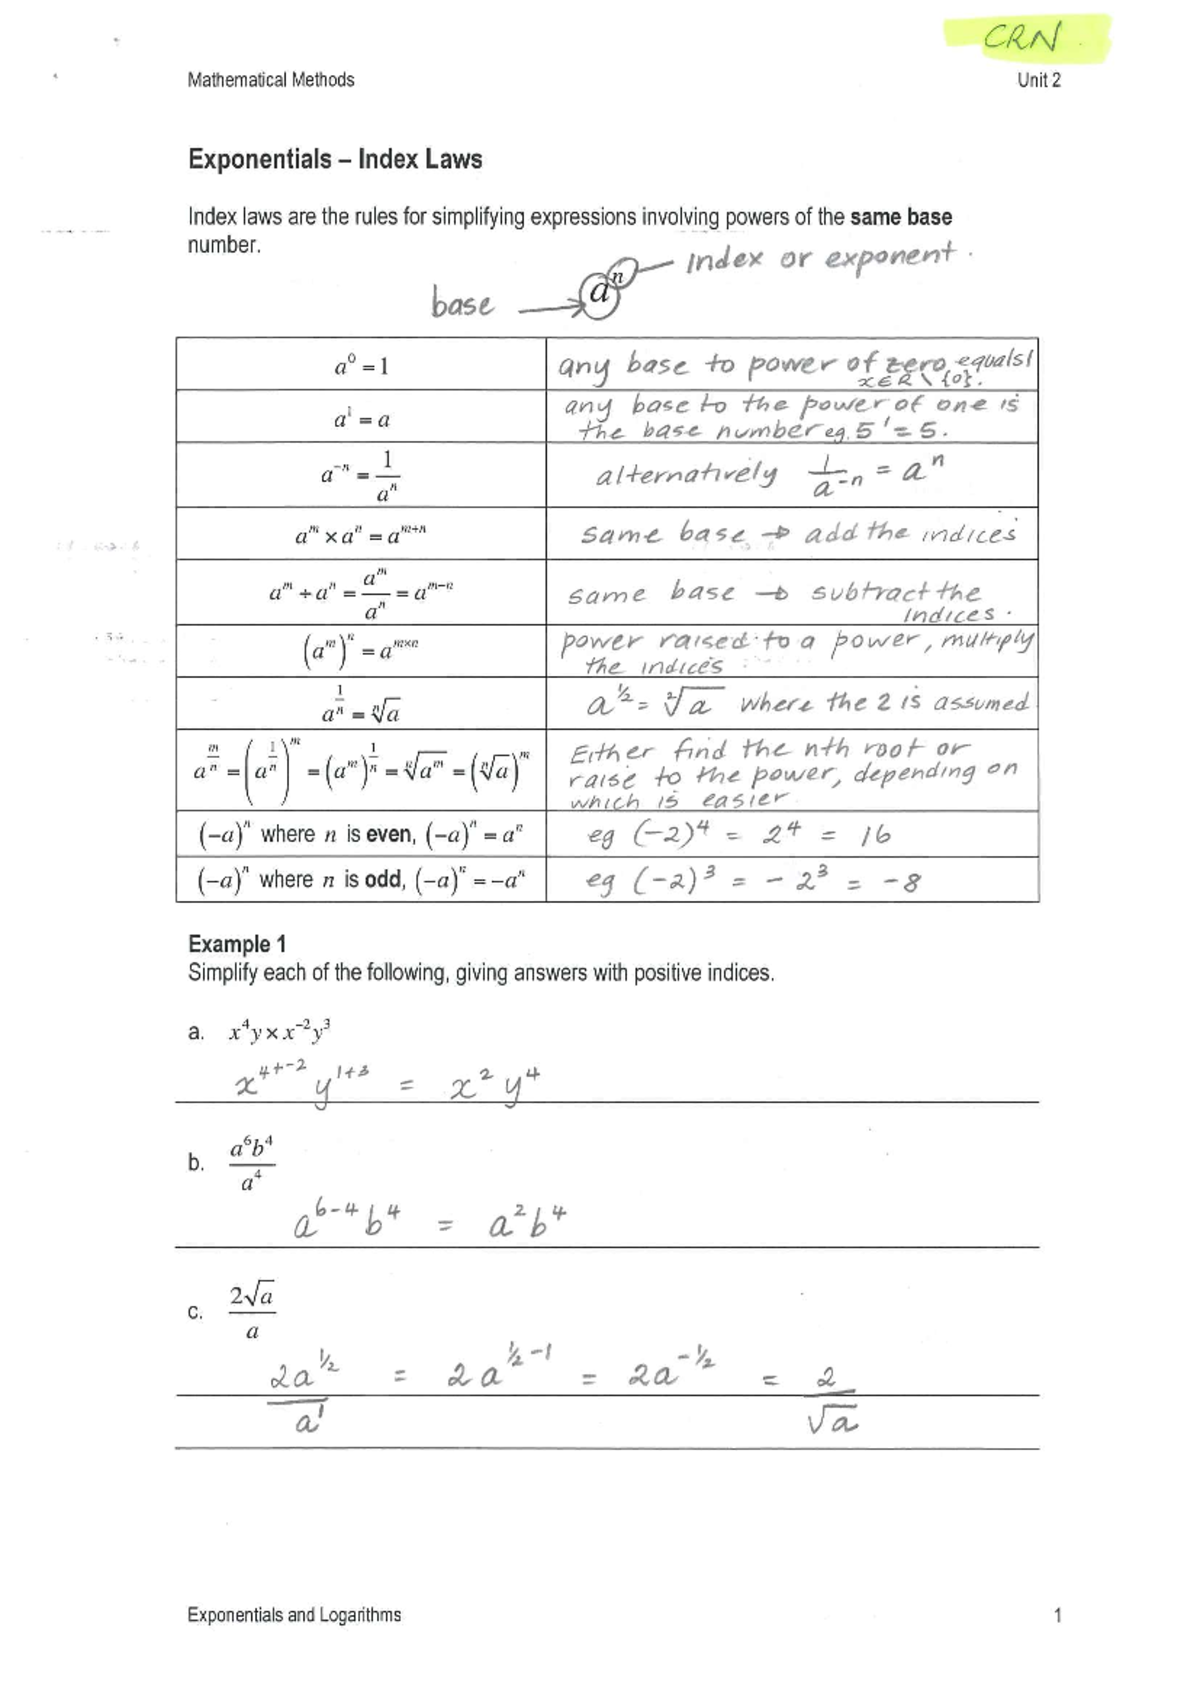 CRN
Mathematical Methods Unit 2
Exponentials – Index Laws
Index laws are the rules for simplifying expressions involving powers of the same base
number.
index or exponent.
base → aⁿ
a⁰ = 1 any base to power of zero equals 1
x∈R\{0}.
a¹ = a any base to the power of one is
the base number eg. 5¹ = 5.
a⁻ⁿ = 1/aⁿ alternatively 1/a⁻ⁿ = aⁿ
aᵐ × aⁿ = aᵐ⁺ⁿ same base → add the indices
aᵐ ÷ aⁿ = aᵐ/aⁿ = aᵐ⁻ⁿ same base → subtract the
indices.
(aᵐ)ⁿ = aᵐˣⁿ power raised to a power, multiply
the indices
a^(1/n) = ⁿ√a a^½ = ²√a where the 2 is assumed
a^(m/n) = (a^(1/n))^m = (a^m)^(1/n) = ⁿ√a^m = (ⁿ√a)^m Either find the nth root or
raise to the power, depending on
which is easier
(−a)ⁿ where n is even, (−a)ⁿ = aⁿ eg (−2)⁴ = 2⁴ = 16
(−a)ⁿ where n is odd, (−a)ⁿ = −aⁿ eg (−2)³ = −2³ = −8
Example 1
Simplify each of the following, giving answers with positive indices.
a. x⁴y × x⁻²y³
x^(4+-2) y^(1+3) = x²y⁴
b. a⁶b⁴/a⁴
a^(6−4) b⁴ = a²b⁴
c. 2√a/a
2a^½/a¹ = 2a^(½−1) = 2a^(−½) = 2/√a
Exponentials and Logarithms 1